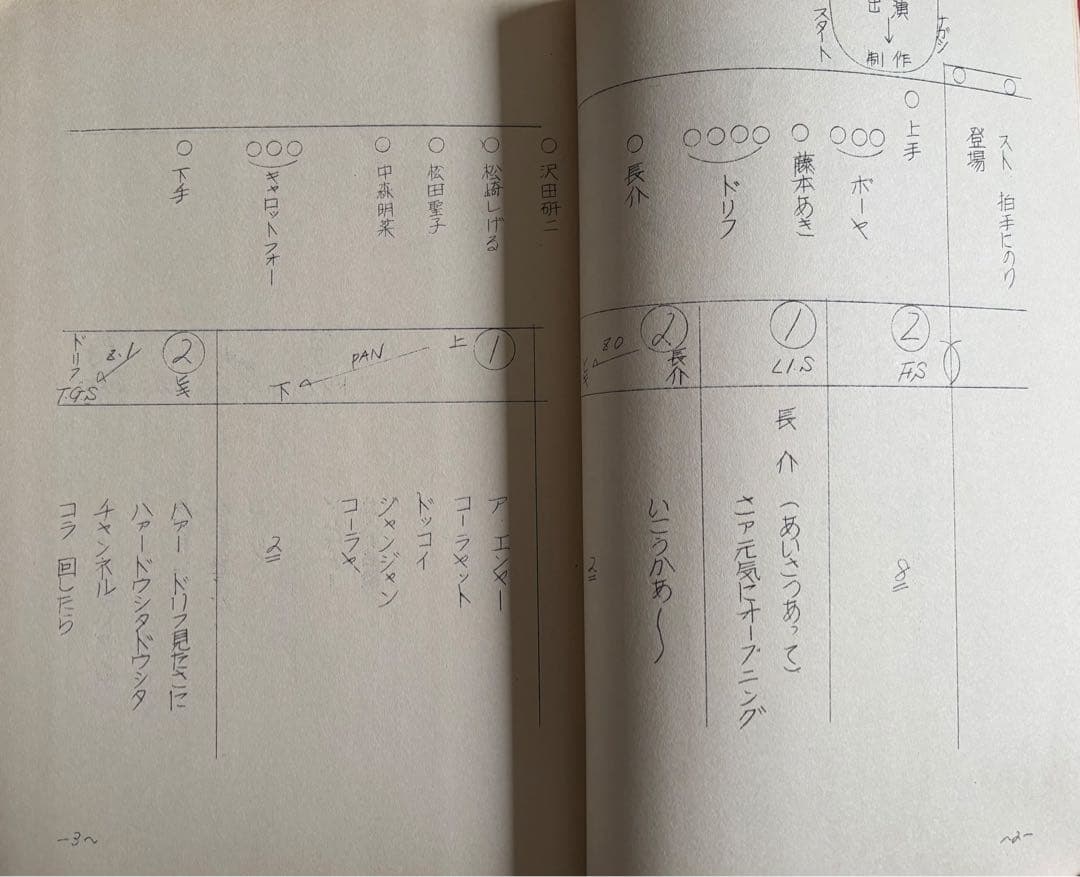 演出
↓
制作
スタート
スト 拍手にのり
登場
○上手
○○○ボーヤ
○藤本あき
○○○○ドリフ
○長介
② F.S
8
① L1.S
長介 (あいさつあって)
さァ元気にオープニング
② 長介
Z.O
いこうかぁ〜
2
-2-
○沢田研二
○松崎しげる
○松田聖子
○中森明菜
○○○キャロットフォー
○下手
① 上
PAN
下
ア、エンヤー
コーラヤット
ドッコイ
ジャンジャン
コーラヤ
2
②
Z.I
ドリフ
T.G.S
ハァー ドリフ見たさに
ハァードウシタドウシタ
チャンネル
コラ 回したら
-3-